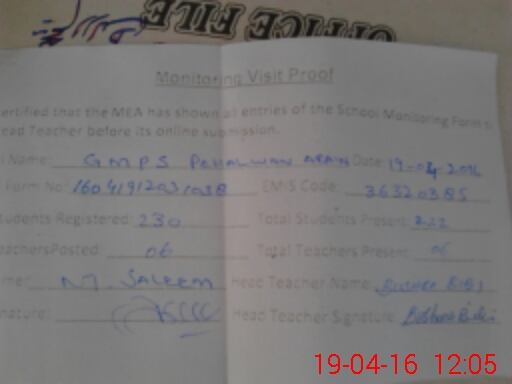 OFFICE FILE
Monitoring Visit Proof
ertified that the MEA has shown all entries of the School Monitoring Form t
ead Teacher before its online submission.
l Name: GMPS PAHALWAN ARAIN Date: 19-04-2016
Form No: EMIS Code: 36320385
tudents Registered: 230 Total Students Present: 222
eachersPosted: 06 Total Teachers Present: 06
me: M. Saleem Head Teacher Name: Bushra Bibi
nature: Head Teacher Signature: Bushra Bibi
19-04-16 12:05